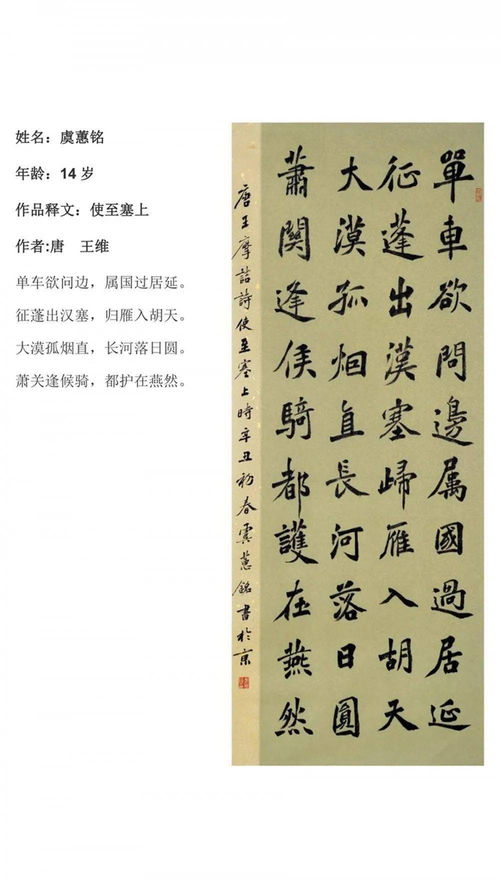 姓名：虞蕙铭
年龄：14 岁
作品释文：使至塞上
作者:唐　王维
单车欲问边，属国过居延。
征蓬出汉塞，归雁入胡天。
大漠孤烟直，长河落日圆。
萧关逢候骑，都护在燕然。
單車欲問邊属國過居延
征蓬出漢塞歸雁入胡天
大漠孤烟直長河落日圓
蕭関逢侯騎都護在燕然
唐王摩詰詩使至塞上時辛丑初春虞蕙銘書於京